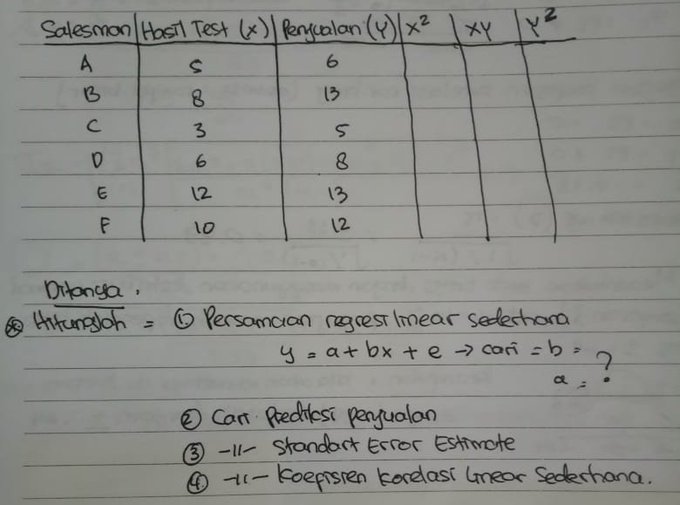 Salesman Hasil Test (x) Penjualan (Y) X² XY Y²
A 5 6
B 8 13
C 3 5
D 6 8
E 12 13
F 10 12
Ditanya.
Hitunglah = ① Persamaan regresi linear sederhana
y = a + bx + e → cari = b = ?
a = ?
② Cari Prediksi penjualan
③ -11- Standart Error Estimate
④ -11- Koefisien Korelasi Linear Sederhana.